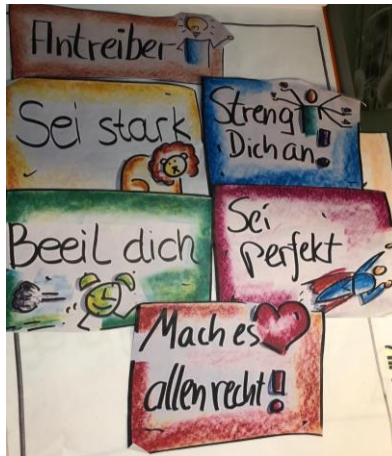 Antreiber
Sei stark
Streng
Dich an!
Beeil dich
Sei
perfekt
Mach es
allen recht!